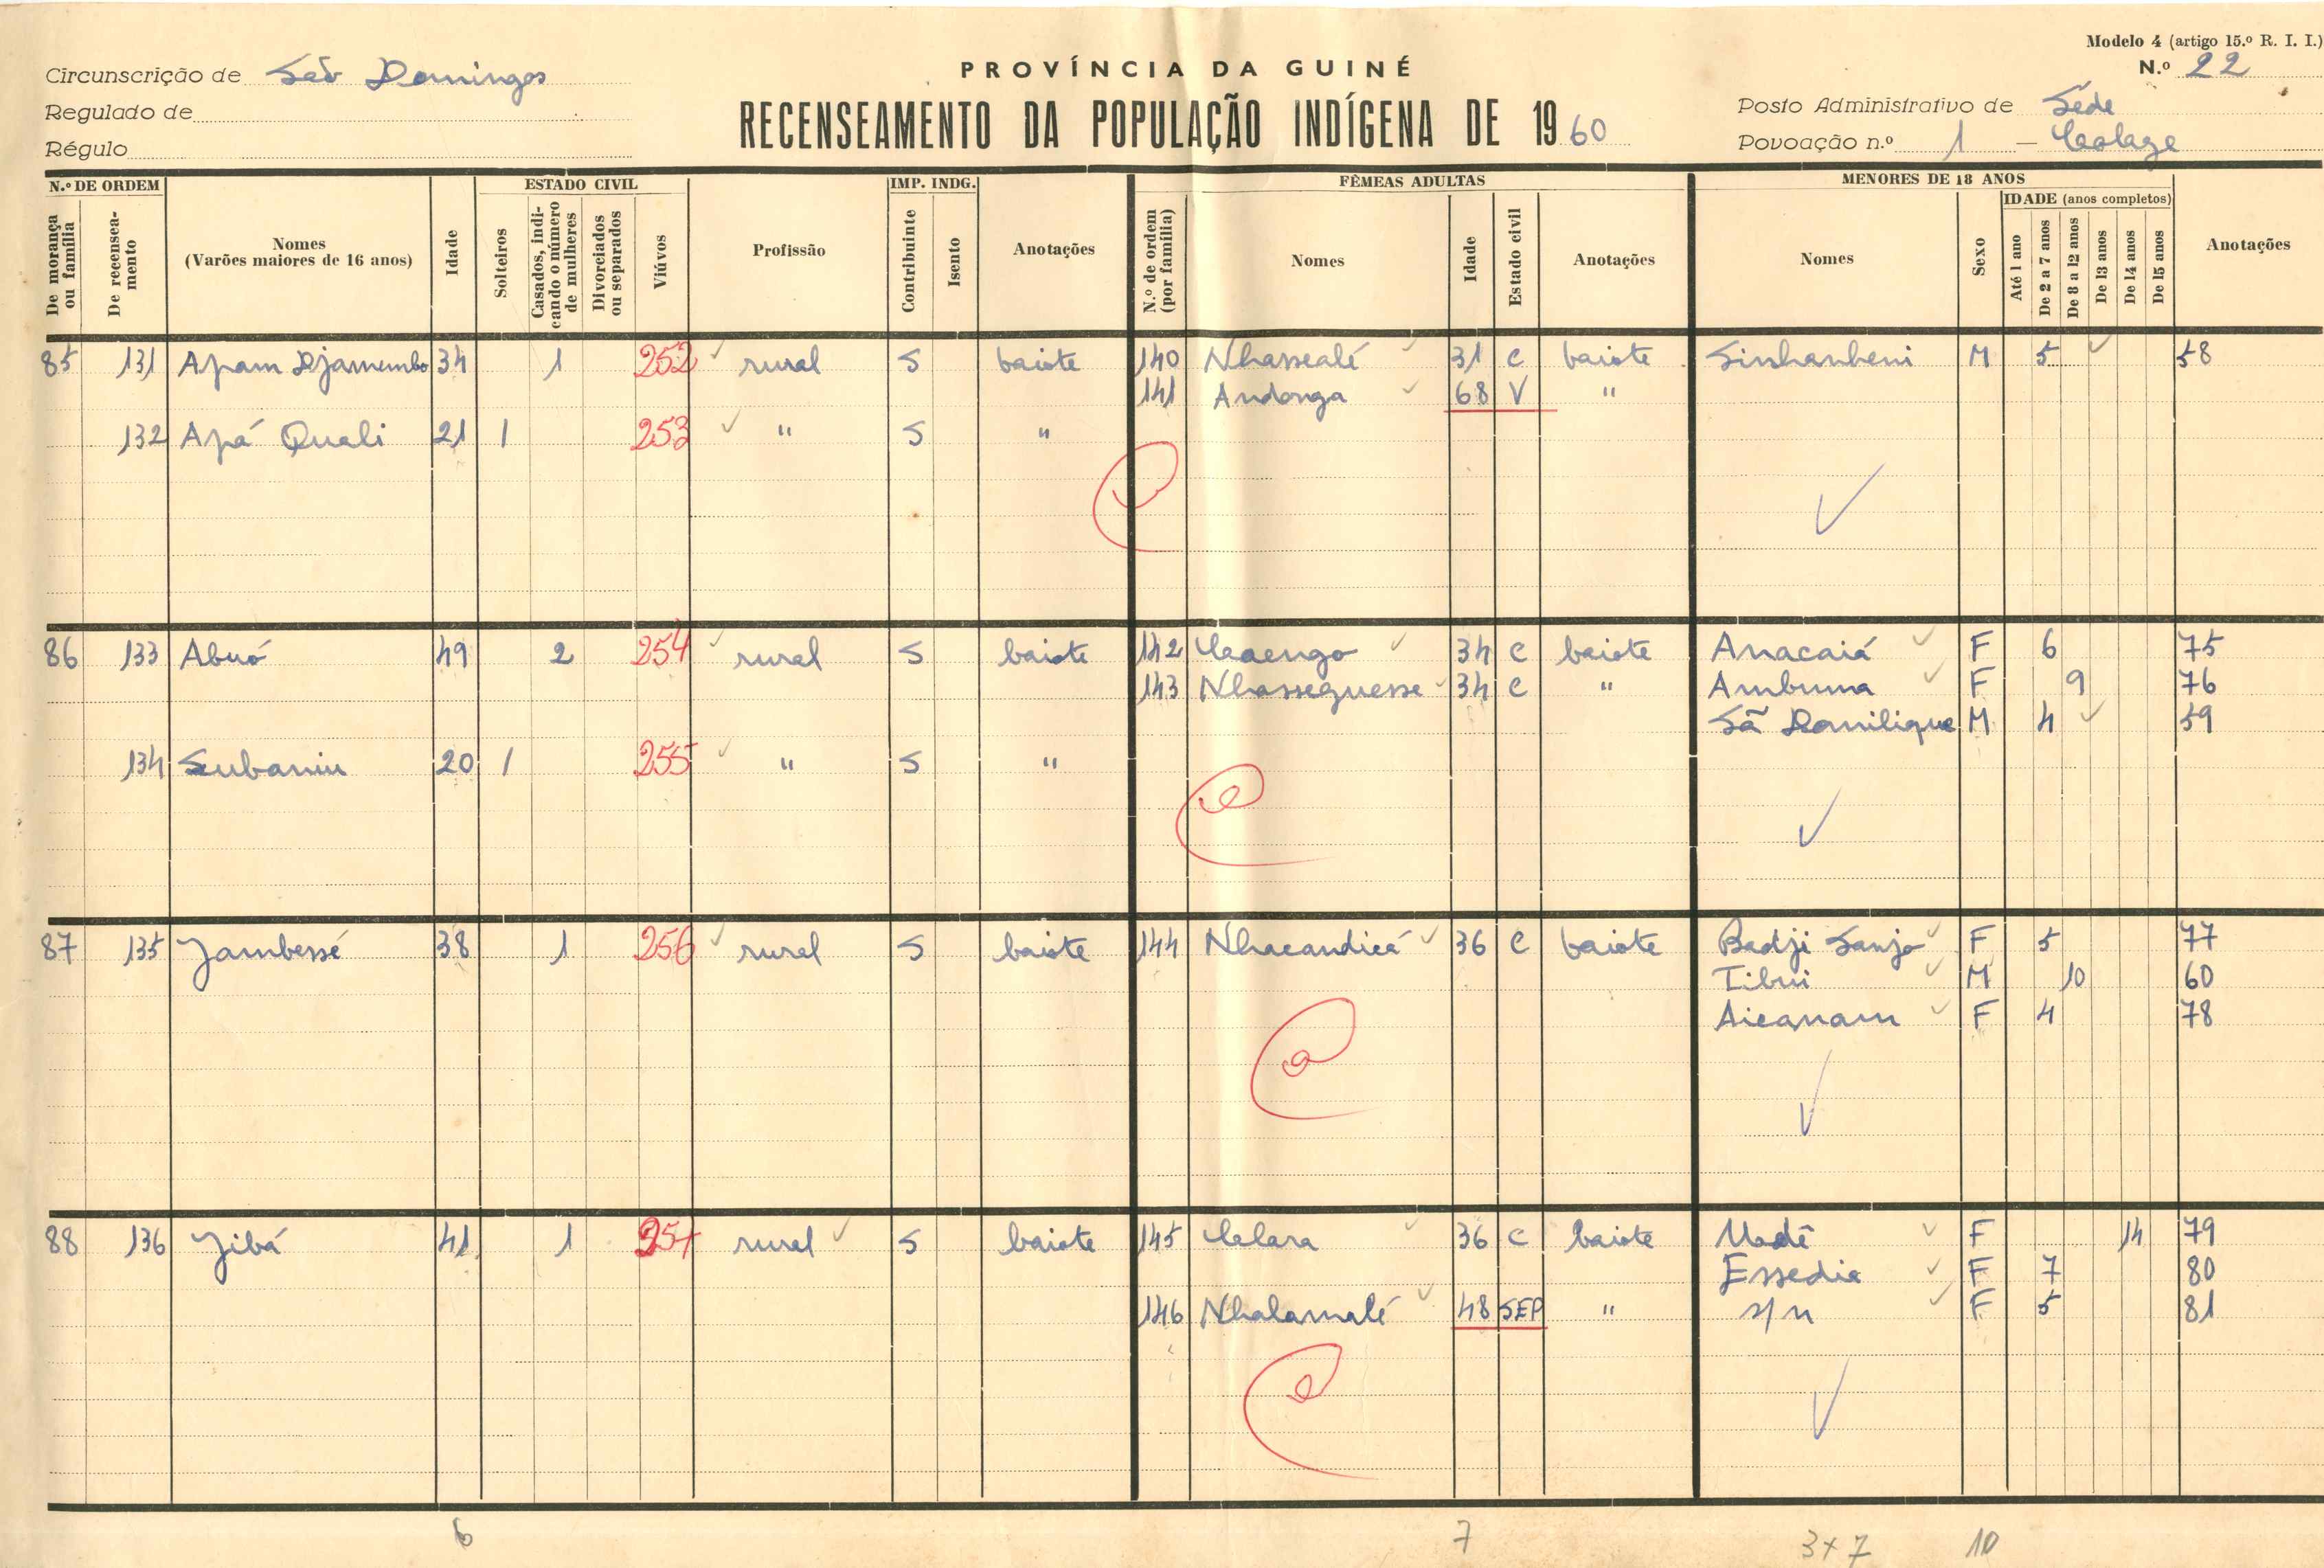 Modelo 4 (artigo 15.º R. I. I.)
Circunscrição de São Domingos
PROVÍNCIA DA GUINÉ
N.º 22
Regulado de
RECENSEAMENTO DA POPULAÇÃO INDÍGENA DE 1960
Posto Administrativo de Séde
Régulo
Povoação n.º 1 — Colage
N.º DE ORDEM ESTADO CIVIL IMP. INDG. FÊMEAS ADULTAS MENORES DE 18 ANOS
IDADE (anos completos)
De morança ou família De recenseamento Nomes (Varões maiores de 16 anos) Idade Solteiros Casados, indicando o número de mulheres Divorciados ou separados Viúvos Profissão Contribuinte Isento Anotações N.º de ordem (por família) Nomes Idade Estado civil Anotações Nomes Sexo Até 1 ano De 2 a 7 anos De 8 a 12 anos De 13 anos De 14 anos De 15 anos Anotações
85 131 Apam Djamembo 34 1 252 rural S baiote 140 Nhassealé 31 C baiote Sinhanbeni M 5 58
141 Andonga 68 V "
132 Apá Quali 21 1 253 " S "
86 133 Abuó 49 2 254 rural S baiote 142 Caengo 34 C baiote Anacaiá F 6 75
143 Nhasseguesse 34 C " Ambuma F 9 76
Sã Domilique M 4 59
134 Subaniu 20 1 255 " S "
87 135 Jambessé 38 1 256 rural S baiote 144 Nhacandicá 36 C baiote Badji Sanjo F 5 77
Tibui M 10 60
Aicanam F 4 78
88 136 Jibá 41 1 257 rural S baiote 145 Clara 36 C baiote F 14 79
Essedia F 7 80
146 Nhalamalé 48 SEP " s/n F 5 81
6 7 3+7 10